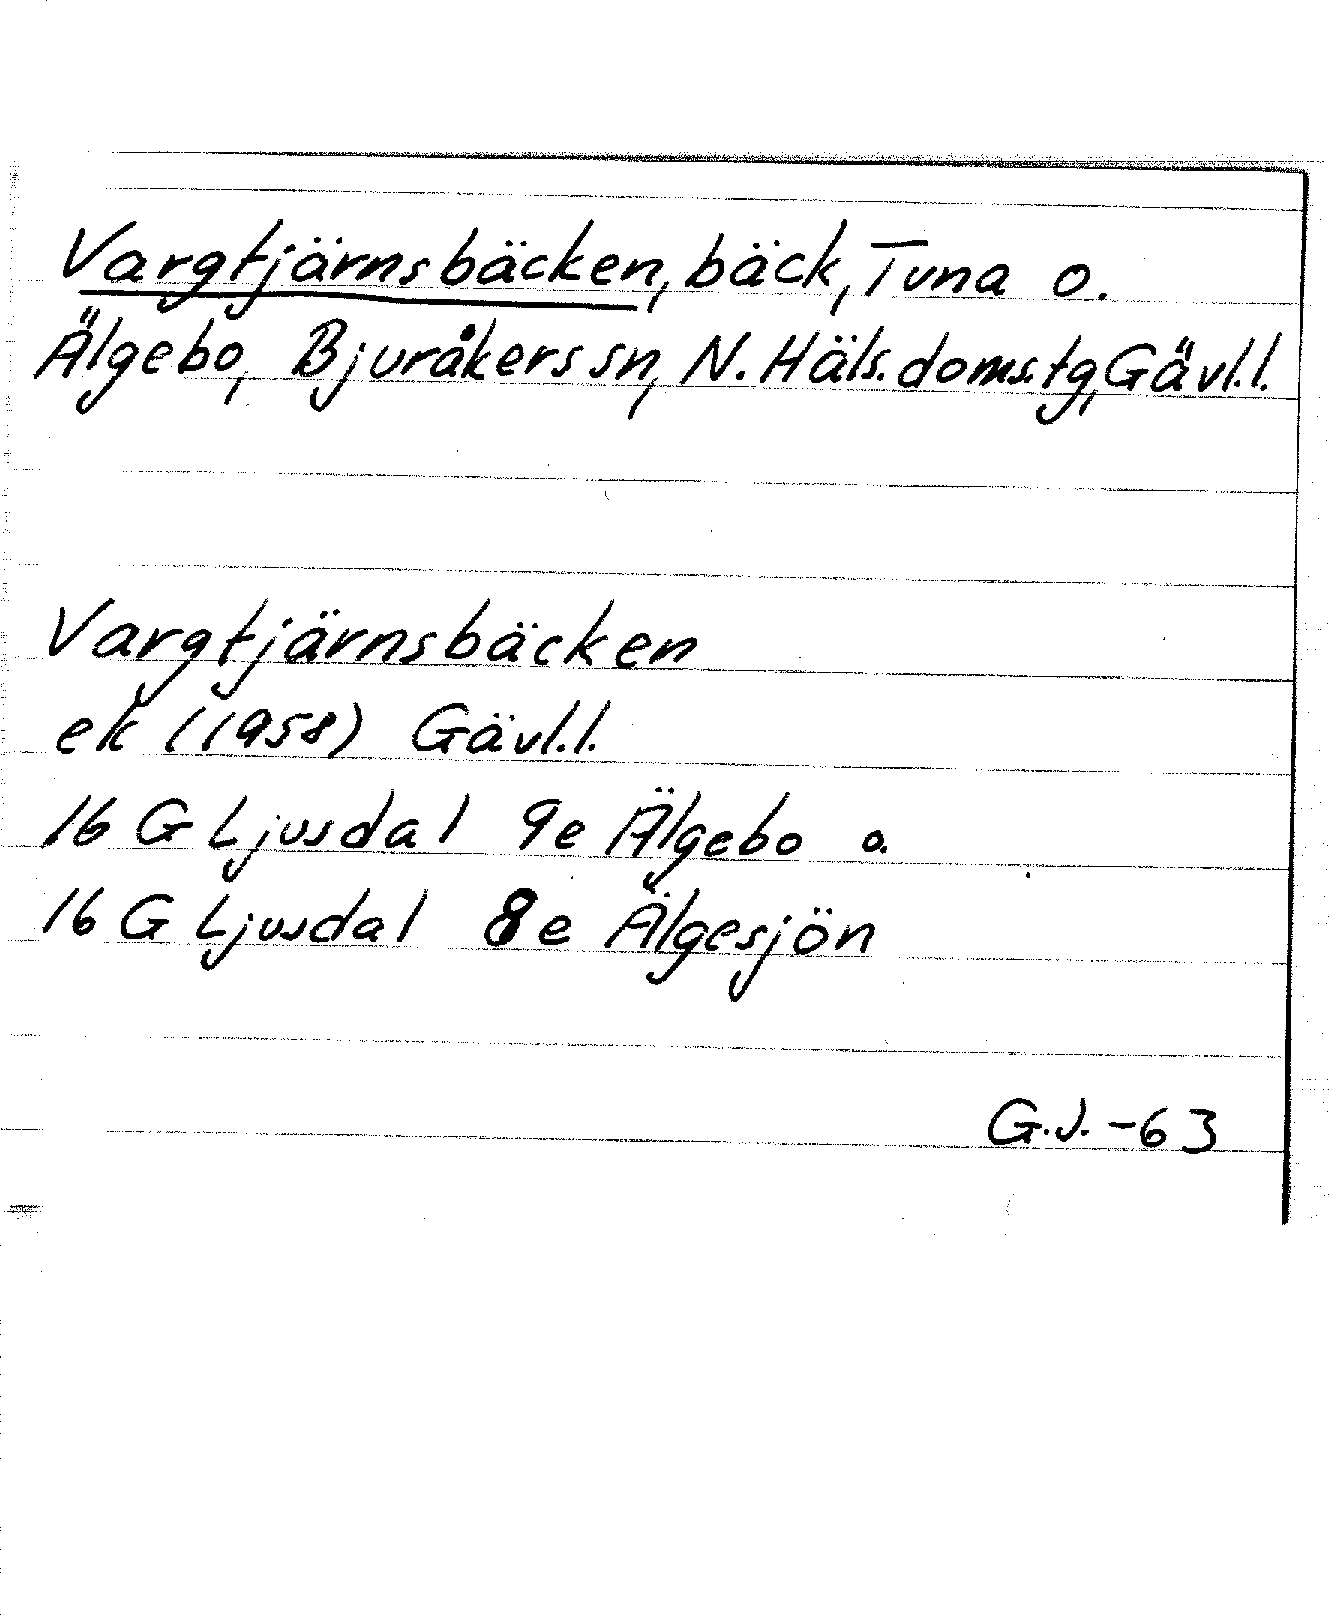 Vargtjärnsbäcken, bäck, Tuna o.
Älgebo, Bjuråkers sn, N. Häls. doms.tg, Gävl.l.
Vargtjärnsbäcken
ek (1958) Gävl.l.
16 G Ljusdal 9e Älgebo o.
16 G Ljusdal 8e Älgesjön
G.J. -63